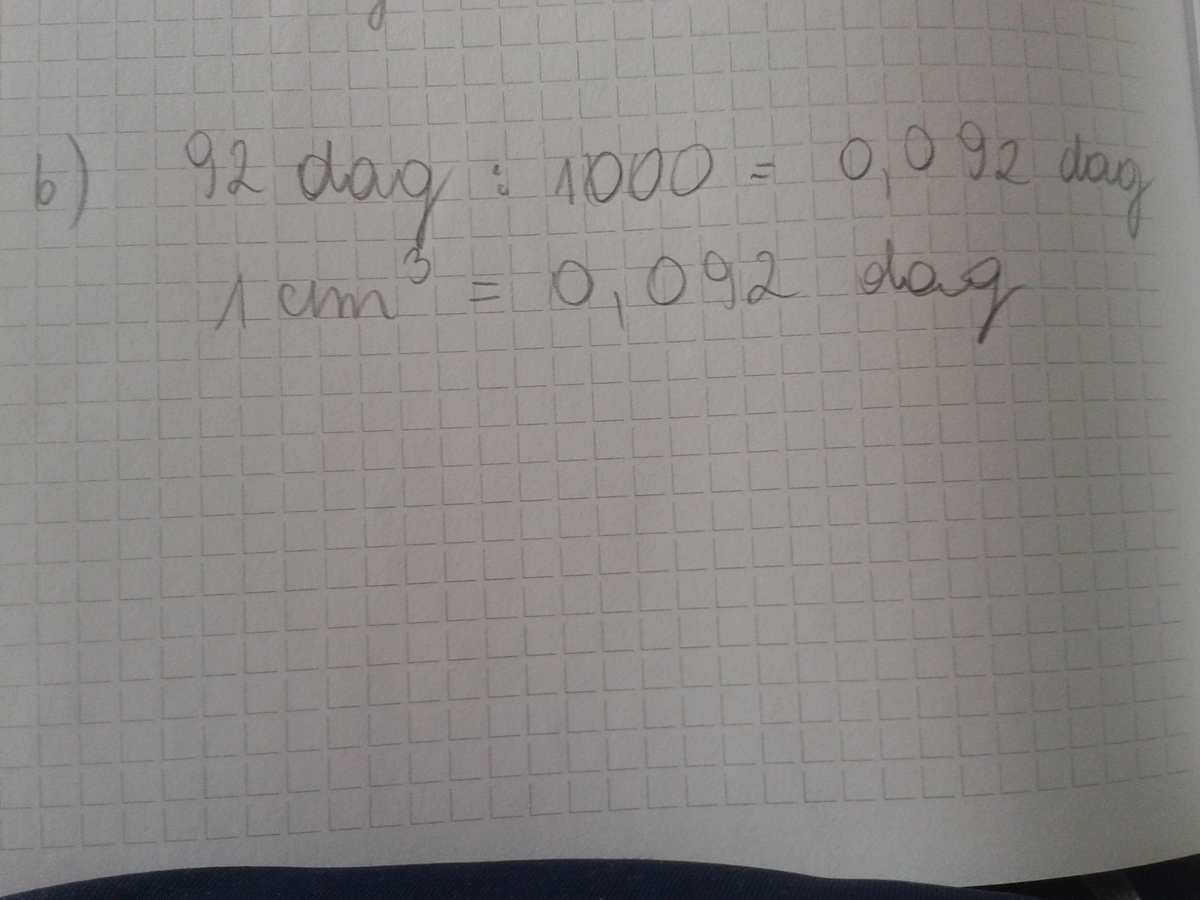 b) 92 dag : 1000 = 0,092 dag
1 cm³ = 0,092 dag